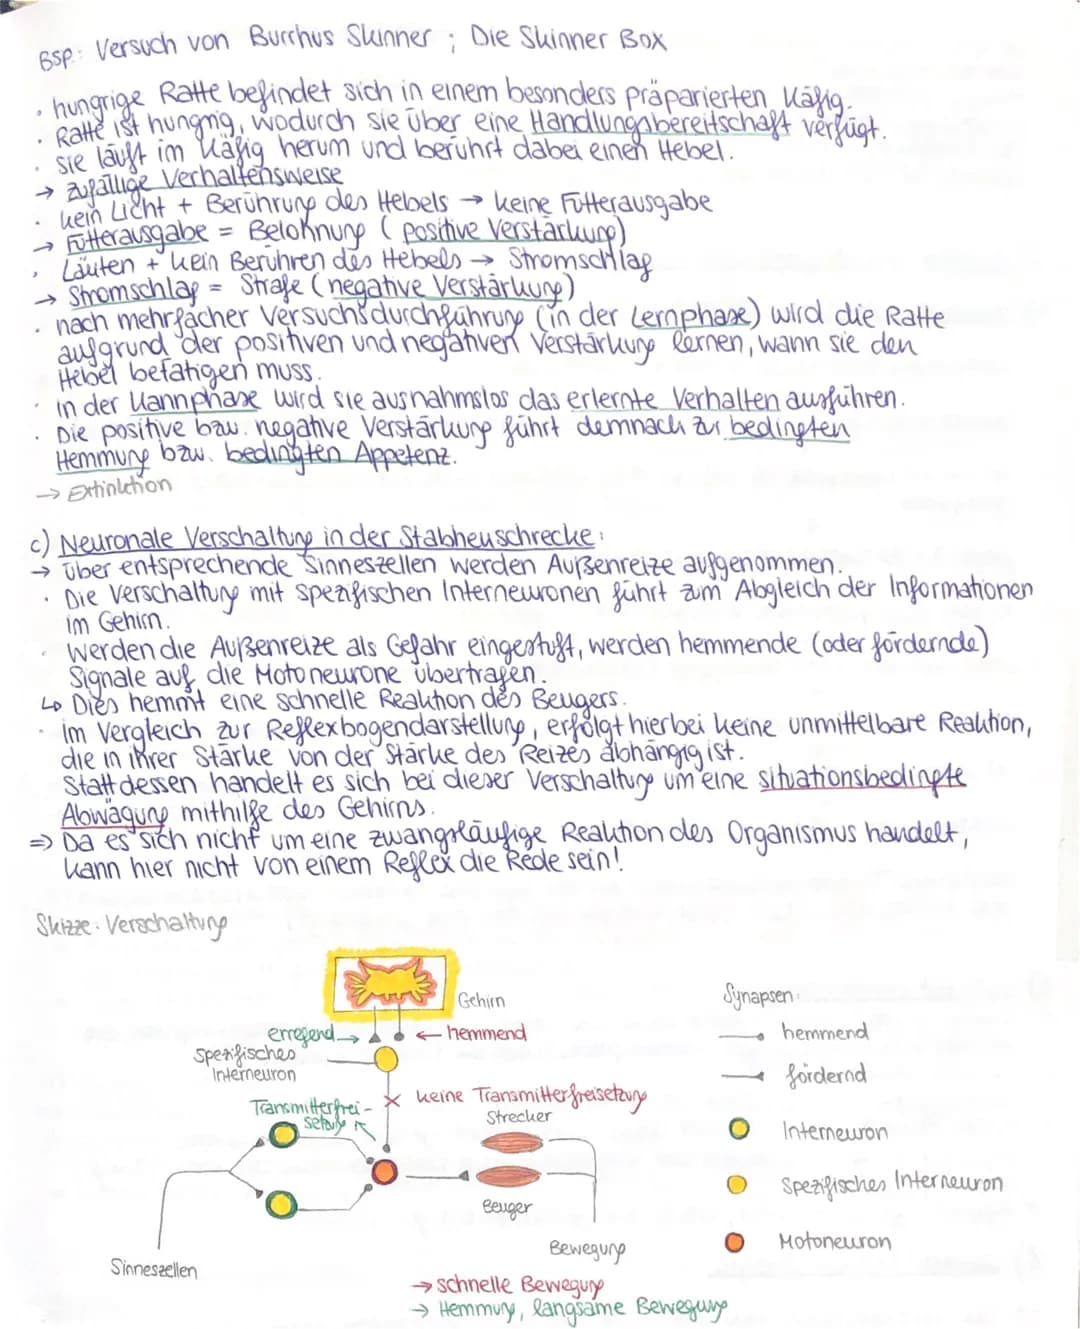 Bsp.: Versuch von Burrhus Skinner ; Die Skinner Box
· hungrige Ratte befindet sich in einem besonders präparierten Käfig.
· Ratte ist hungrig, wodurch sie über eine Handlungsbereitschaft verfügt.
· sie läuft im Käfig herum und berührt dabei einen Hebel.
→ zufällige Verhaltensweise
· kein Licht + Berührung des Hebels → keine Futterausgabe
→ Futterausgabe = Belohnung (positive Verstärkung)
· Läuten + kein Berühren des Hebels → Stromschlag
→ Stromschlag = Strafe (negative Verstärkung)
· nach mehrfacher Versuchsdurchführung (in der Lernphase) wird die Ratte
aufgrund der positiven und negativen Verstärkung lernen, wann sie den
Hebel betätigen muss.
· in der Kannphase wird sie ausnahmslos das erlernte Verhalten ausführen.
· Die positive bzw. negative Verstärkung führt demnach zu bedingten
Hemmung bzw. bedingten Appetenz.
→ Extinktion
c) Neuronale Verschaltung in der Stabheuschrecke:
→ über entsprechende Sinneszellen werden Außenreize aufgenommen.
· Die Verschaltung mit spezifischen Interneuronen führt zum Abgleich der Informationen
im Gehirn.
· Werden die Außenreize als Gefahr eingestuft, werden hemmende (oder fördernde)
Signale auf die Motoneurone übertragen.
↳ Dies hemmt eine schnelle Reaktion des Beugers.
· im Vergleich zur Reflexbogendarstellung, erfolgt hierbei keine unmittelbare Reaktion,
die in ihrer Stärke von der Stärke des Reizes abhängig ist.
Stattdessen handelt es sich bei dieser Verschaltung um eine situationsbedingte
Abwägung mithilfe des Gehirns.
⇒ Da es sich nicht um eine zwangsläufige Reaktion des Organismus handelt,
kann hier nicht von einem Reflex die Rede sein!
Skizze: Verschaltung
Gehirn
erregend →
← hemmend
spezifisches
Interneuron
× keine Transmitterfreisetzung
Transmitterfrei-
setzung
Strecker
Beuger
Bewegung
Sinneszellen
→ schnelle Bewegung
→ Hemmung, langsame Bewegung
Synapsen:
hemmend
fördernd
Interneuron
Spezifisches Interneuron
Motoneuron